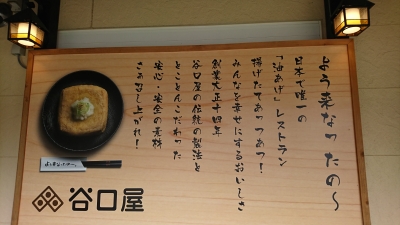 よう来なったの～
日本で唯一の
「油あげ」レストラン
揚げたてあっつあつ！
みんなを幸せにするおいしさ
創業大正十四年
谷口屋の伝統の製法と
とことんこだわった
安心・安全の素材
さぁ召し上がれ！
谷口屋